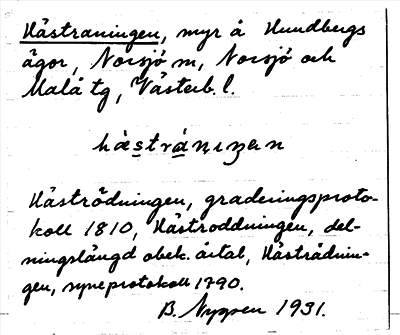 Hästraningen, myr å Hundbergs
ägor, Norsjö sn, Norsjö och
Malå tg, Västerb. l.
hàstránıŋan
Häströdningen, graderingsproto-
koll 1810, Hästroddningen, del-
ningslängd obek. årtal, Hästrådnin-
gen, syneprotokoll 1790.
B. Nygren 1931.